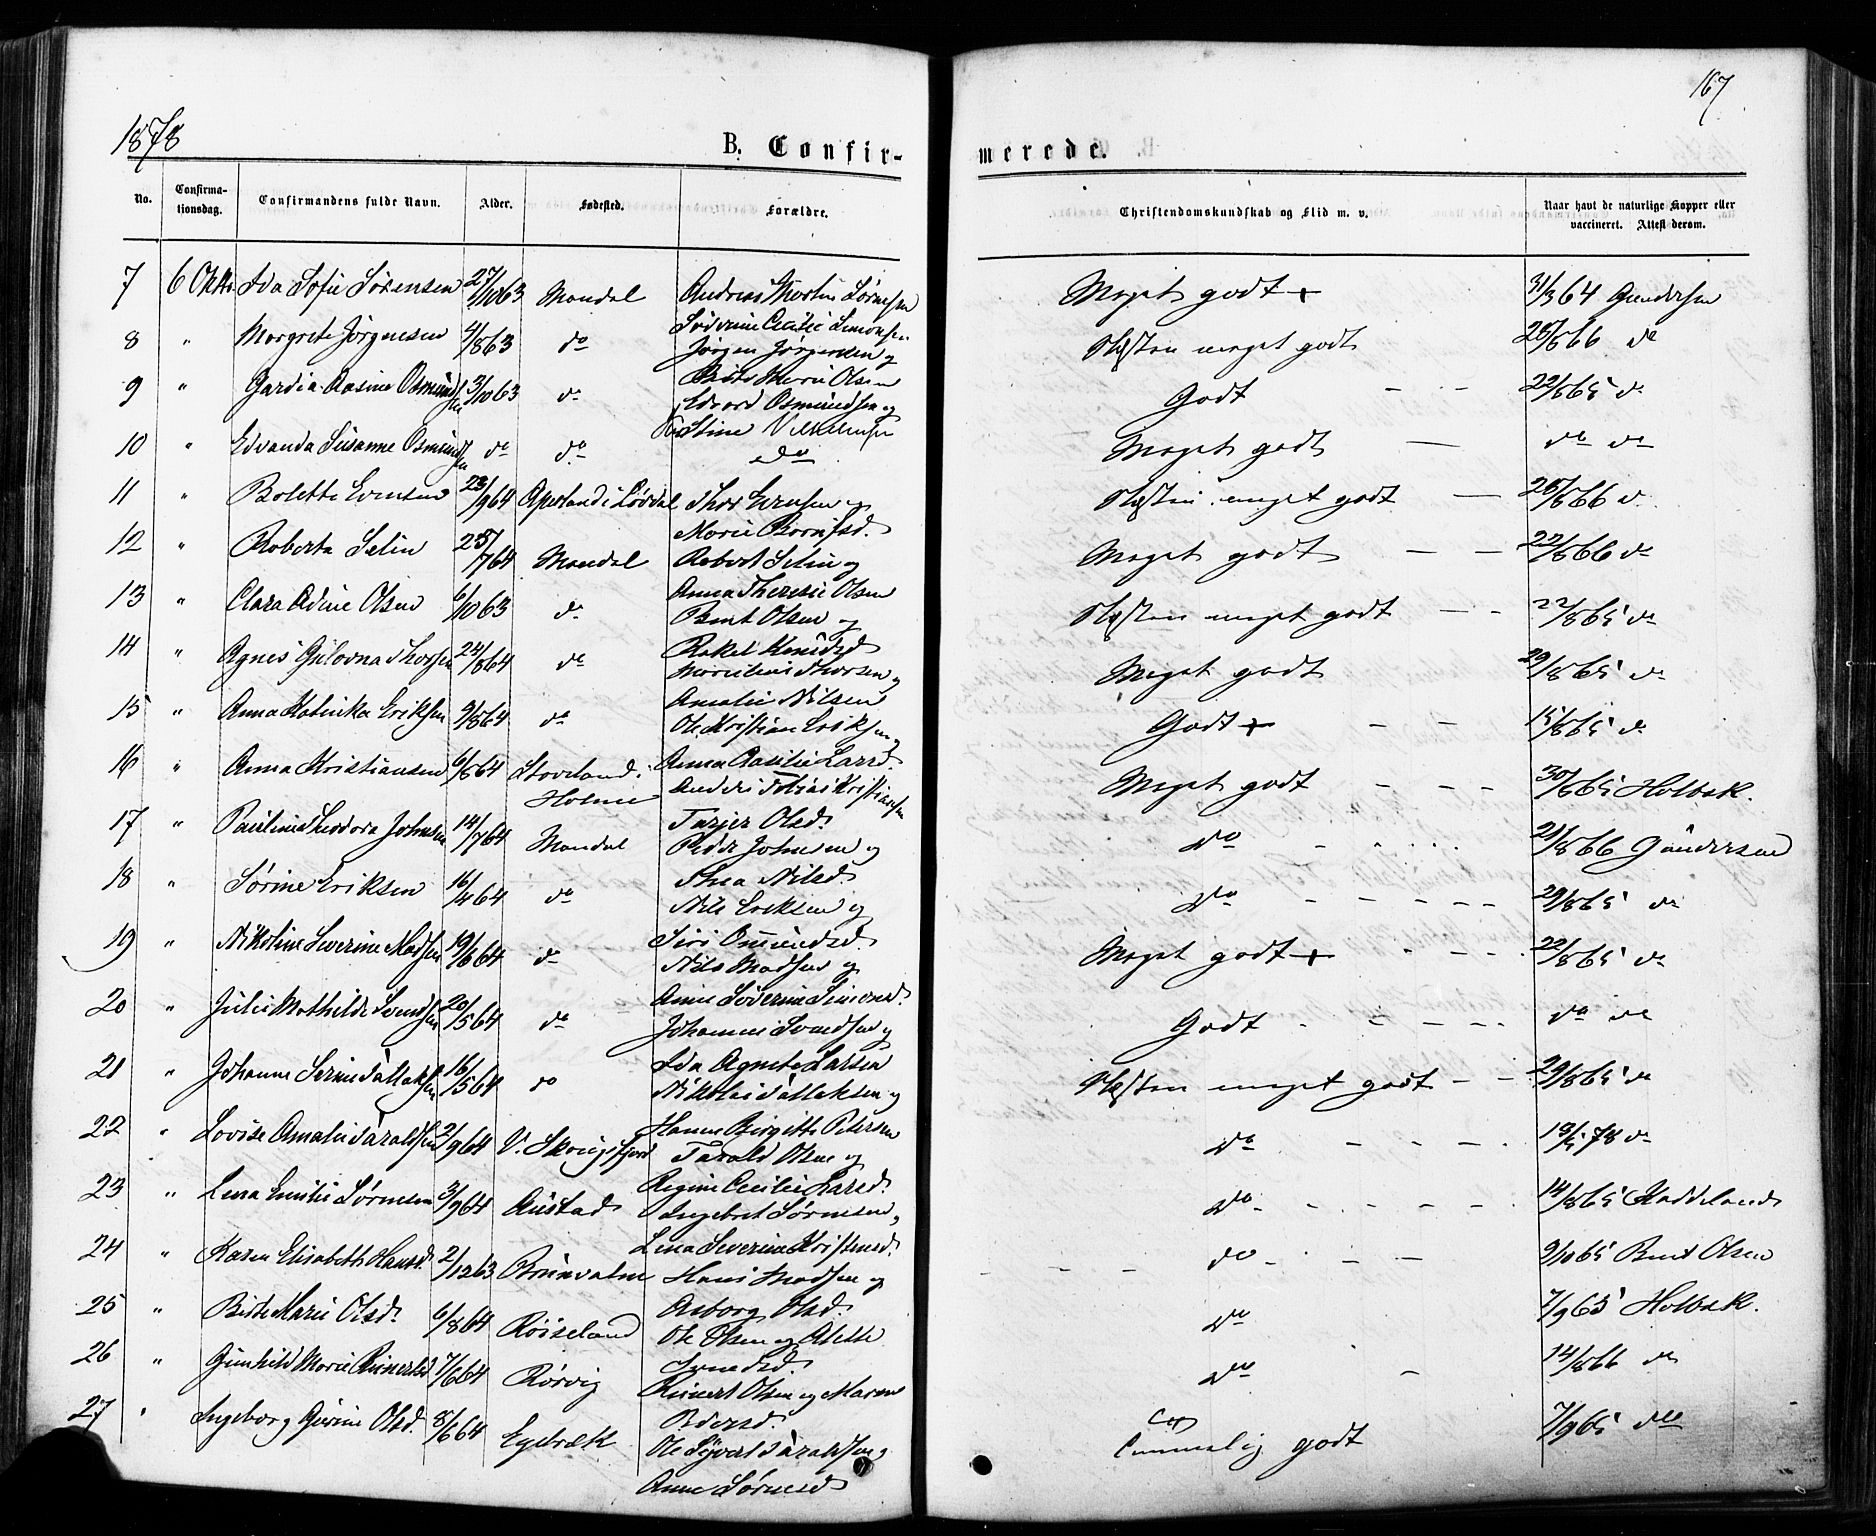 1878
167
B. Confir-
merede.
No. Confirma-tionsdag. Confirmandens fulde Navn. Alder. Fødested. Forældre. Christendomskundskab og Flid m. v. Naar havt de naturlige Kopper eller vaccineret. Attest derom.
7 6 Oktb. Ida Sofie Sørensen 27/10 63 Mandal Andreas Martin Sørensen Meget godt + 31/3 64 Gundersen
Severine Cecilie Simonsen
8 " Margrete Jørgensen 4/8 63 do Jørgen Jørgensen og Næsten meget godt 28/6 66 do
Birte Marie Olsen
9 " Gardia Rasine Osmundsen 3/10 63 do Edvard Osmundsen og Godt - - 22/8 65 do
Stine
10 " Edvanda Susanne Osmundsen do do do Meget godt — do do
11 " Bolette Evensen 23/9 64 Aperland i Lørdal Thor Evensen og Næsten meget godt — 28/6 66 do
Marie
12 " Roberta Selin 25/7 64 Mandal Robert Selin og Meget godt — — 22/8 66 do
Anna Theresie Olsen
13 " Clara Adine Olsen 6/10 63 do Bent Olsen og Næsten meget godt — - 22/8 65 do
Rakel Knudsd
14 " Agnes Gulovna Thorsen 24/8 64 do Marcelius Thorsen og Meget godt 29/8 65 do
Amalie Nilsen
15 " Anna Katinka Eriksen 9/8 64 do Ole Kristian Eriksen og Godt + - - 15/8 65 do
Anna Rasilie Larsd.
16 " Anna Kristiansen 6/5 64 Stoveland i Anders Tobias Kristiansen Meget godt - - - 30/6 65 Holbæk.
Holme Tarjer Olsd.
17 " Pauline Theodora Johnsen 14/7 64 Mandal Peder Johnsen og do 21/8 66 Gundersen
Thea Nilsd.
18 " Sørine Eriksen 16/4 64 do Nils Eriksen og do - - - - - 29/8 65 do
Siri Osmundsd.
19 " Nikoline Severine Madsen 19/6 64 do Nils Madsen og Meget godt + 22/8 65 do
Anne Severine Simonsd.
20 " Julie Mathilde Svendsen 20/5 64 do Johannes Svendsen og Godt - - - - do do
Ida Agnete Larsen
21 " Johanne Serine Tallaksen 16/5 64 do Nikolai Tallaksen og Næsten meget godt - - 29/8 65 do
Hanne Birgitte Petersen
22 " Lovise Amalie Taraldsen 2/9 64 V. Skougsfjord Tarald Olsen og do - - - - 18/5 78 do
Regine Cecilie Larsd.
23 " Lena Emilie Sørensen 3/9 64 Austad Ingebret Sørensen og do - - - - 14/8 65 Haddeland
Lena Severine Kristensd.
24 " Karen Elisabeth Hansd. 2/12 63 Brunvatne Hans Madsen og do - - - 9/10 65 Bent Olsen
Asborg Olsd.
25 " Birte Marie Olsd. 6/8 64 Røiseland Ole Olsen og Alette do 7/9 65 Holbæk.
Svendsd.
26 " Gunhild Marie Reinertsd 7/6 64 Rørvig Reinert Olsen og Maren do - 14/8 66 do
Pedersd.
27 " Ingeborg Gurine Olsd. 8/6 64 Egebræk Ole Syvert Taraldsen og Temmelig godt 7/9 65 do
Anne Sørensd